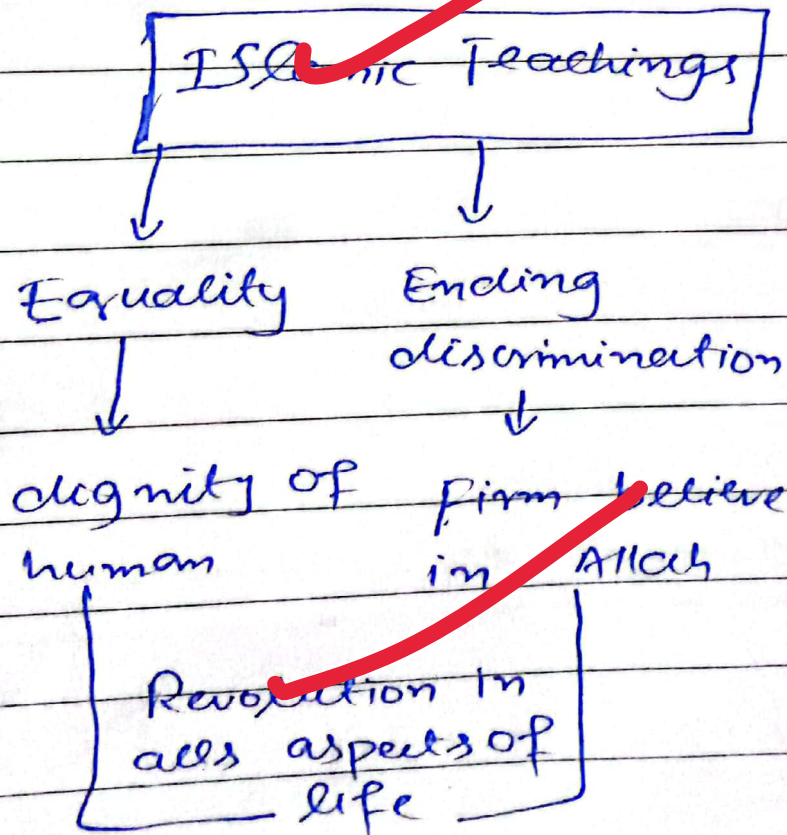 ISlamic Teachings
Equality Ending
discrimination
dignity of firm believe
human in Allah
Revolution In
alls aspects of
life